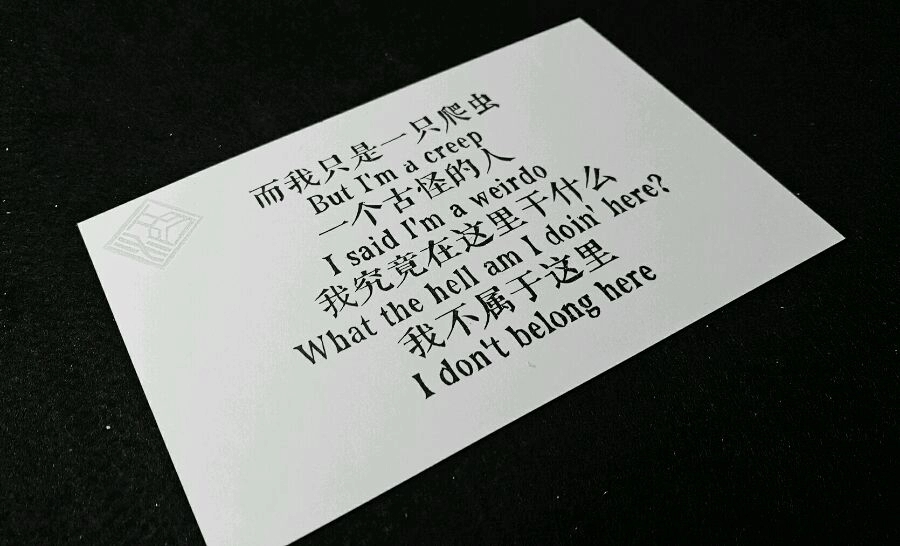 而我只是一只爬虫
But I'm a creep
一个古怪的人
I said I'm a weirdo
我究竟在这里干什么
What the hell am I doin' here?
我不属于这里
I don't belong here